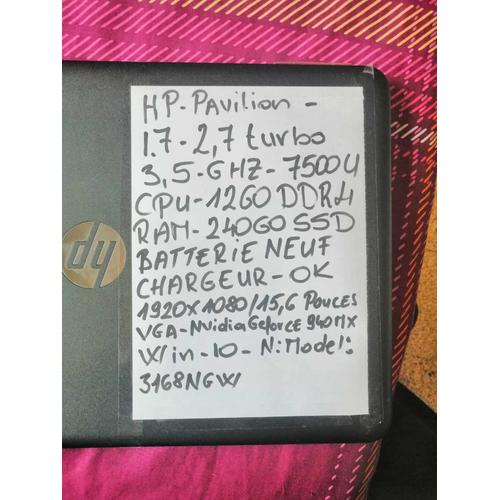 HP-Pavilion-
1.7-2,7 turbo
3,5-GHZ-7500U
CPU-12GO DDR4
RAM-240GO SSD
BATTERIE NEUF
CHARGEUR-OK
1920x1080/15,6 Pouces
VGA-Nvidia Geforce 940MX
Win-10-N:Model:
3168NGW
hp